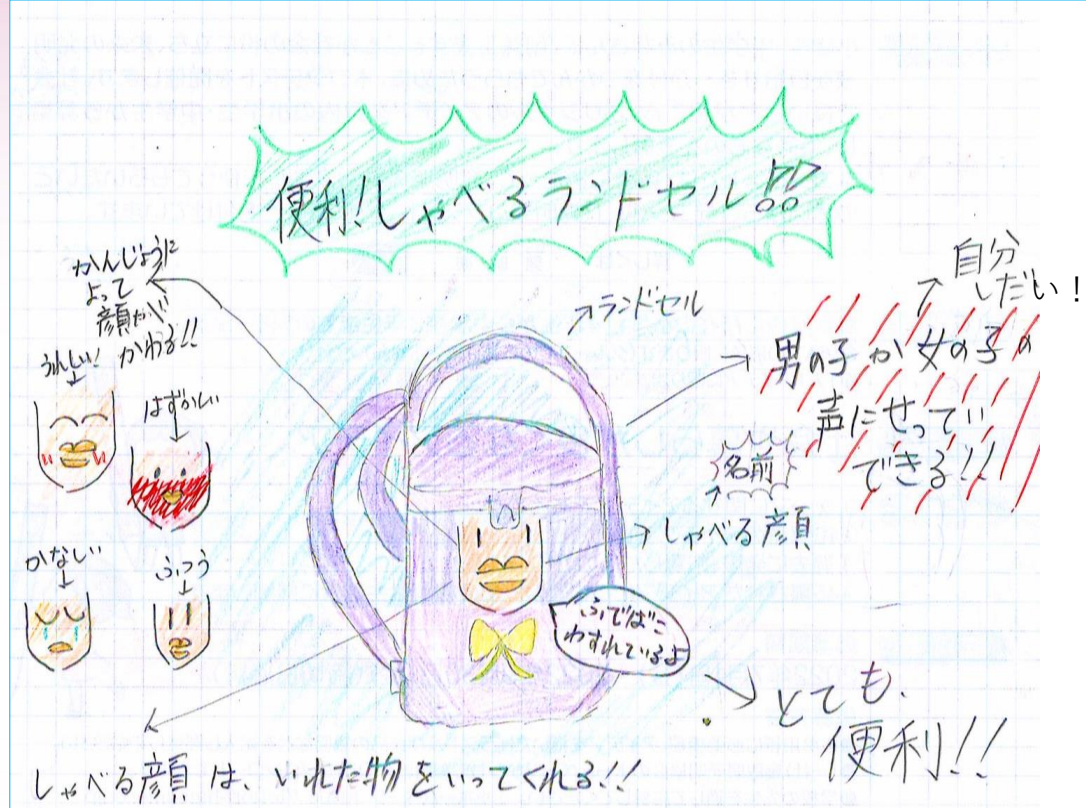 便利!しゃべるランドセル!!
かんじょうに
よって
顔が
かわる!!
うれしい!
はずかしい
かなしい
ふつう
ランドセル
自分
しだい!
男の子か女の子の
声にせってい
できる!!
名前
しゃべる顔
ふでばこ
わすれているよ
とても
便利!!
しゃべる顔は、いれた物をいてくれる!!